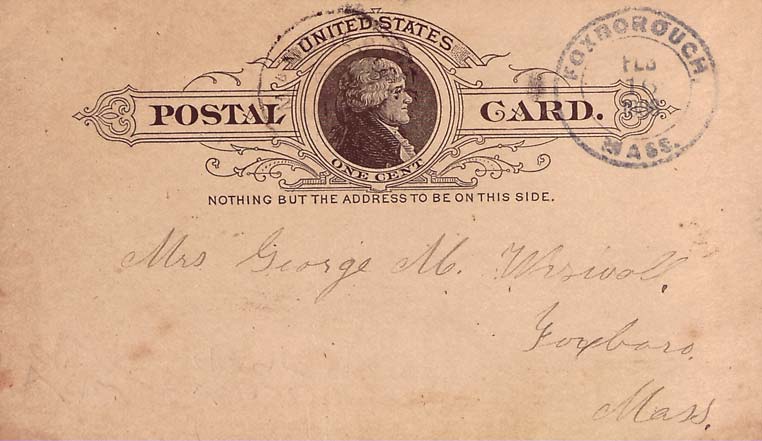 UNITED STATES
POSTAL CARD.
ONE CENT
NOTHING BUT THE ADDRESS TO BE ON THIS SIDE.
FOXBOROUGH
FEB
MASS.
Mrs George M.
Foxboro,
Mass.